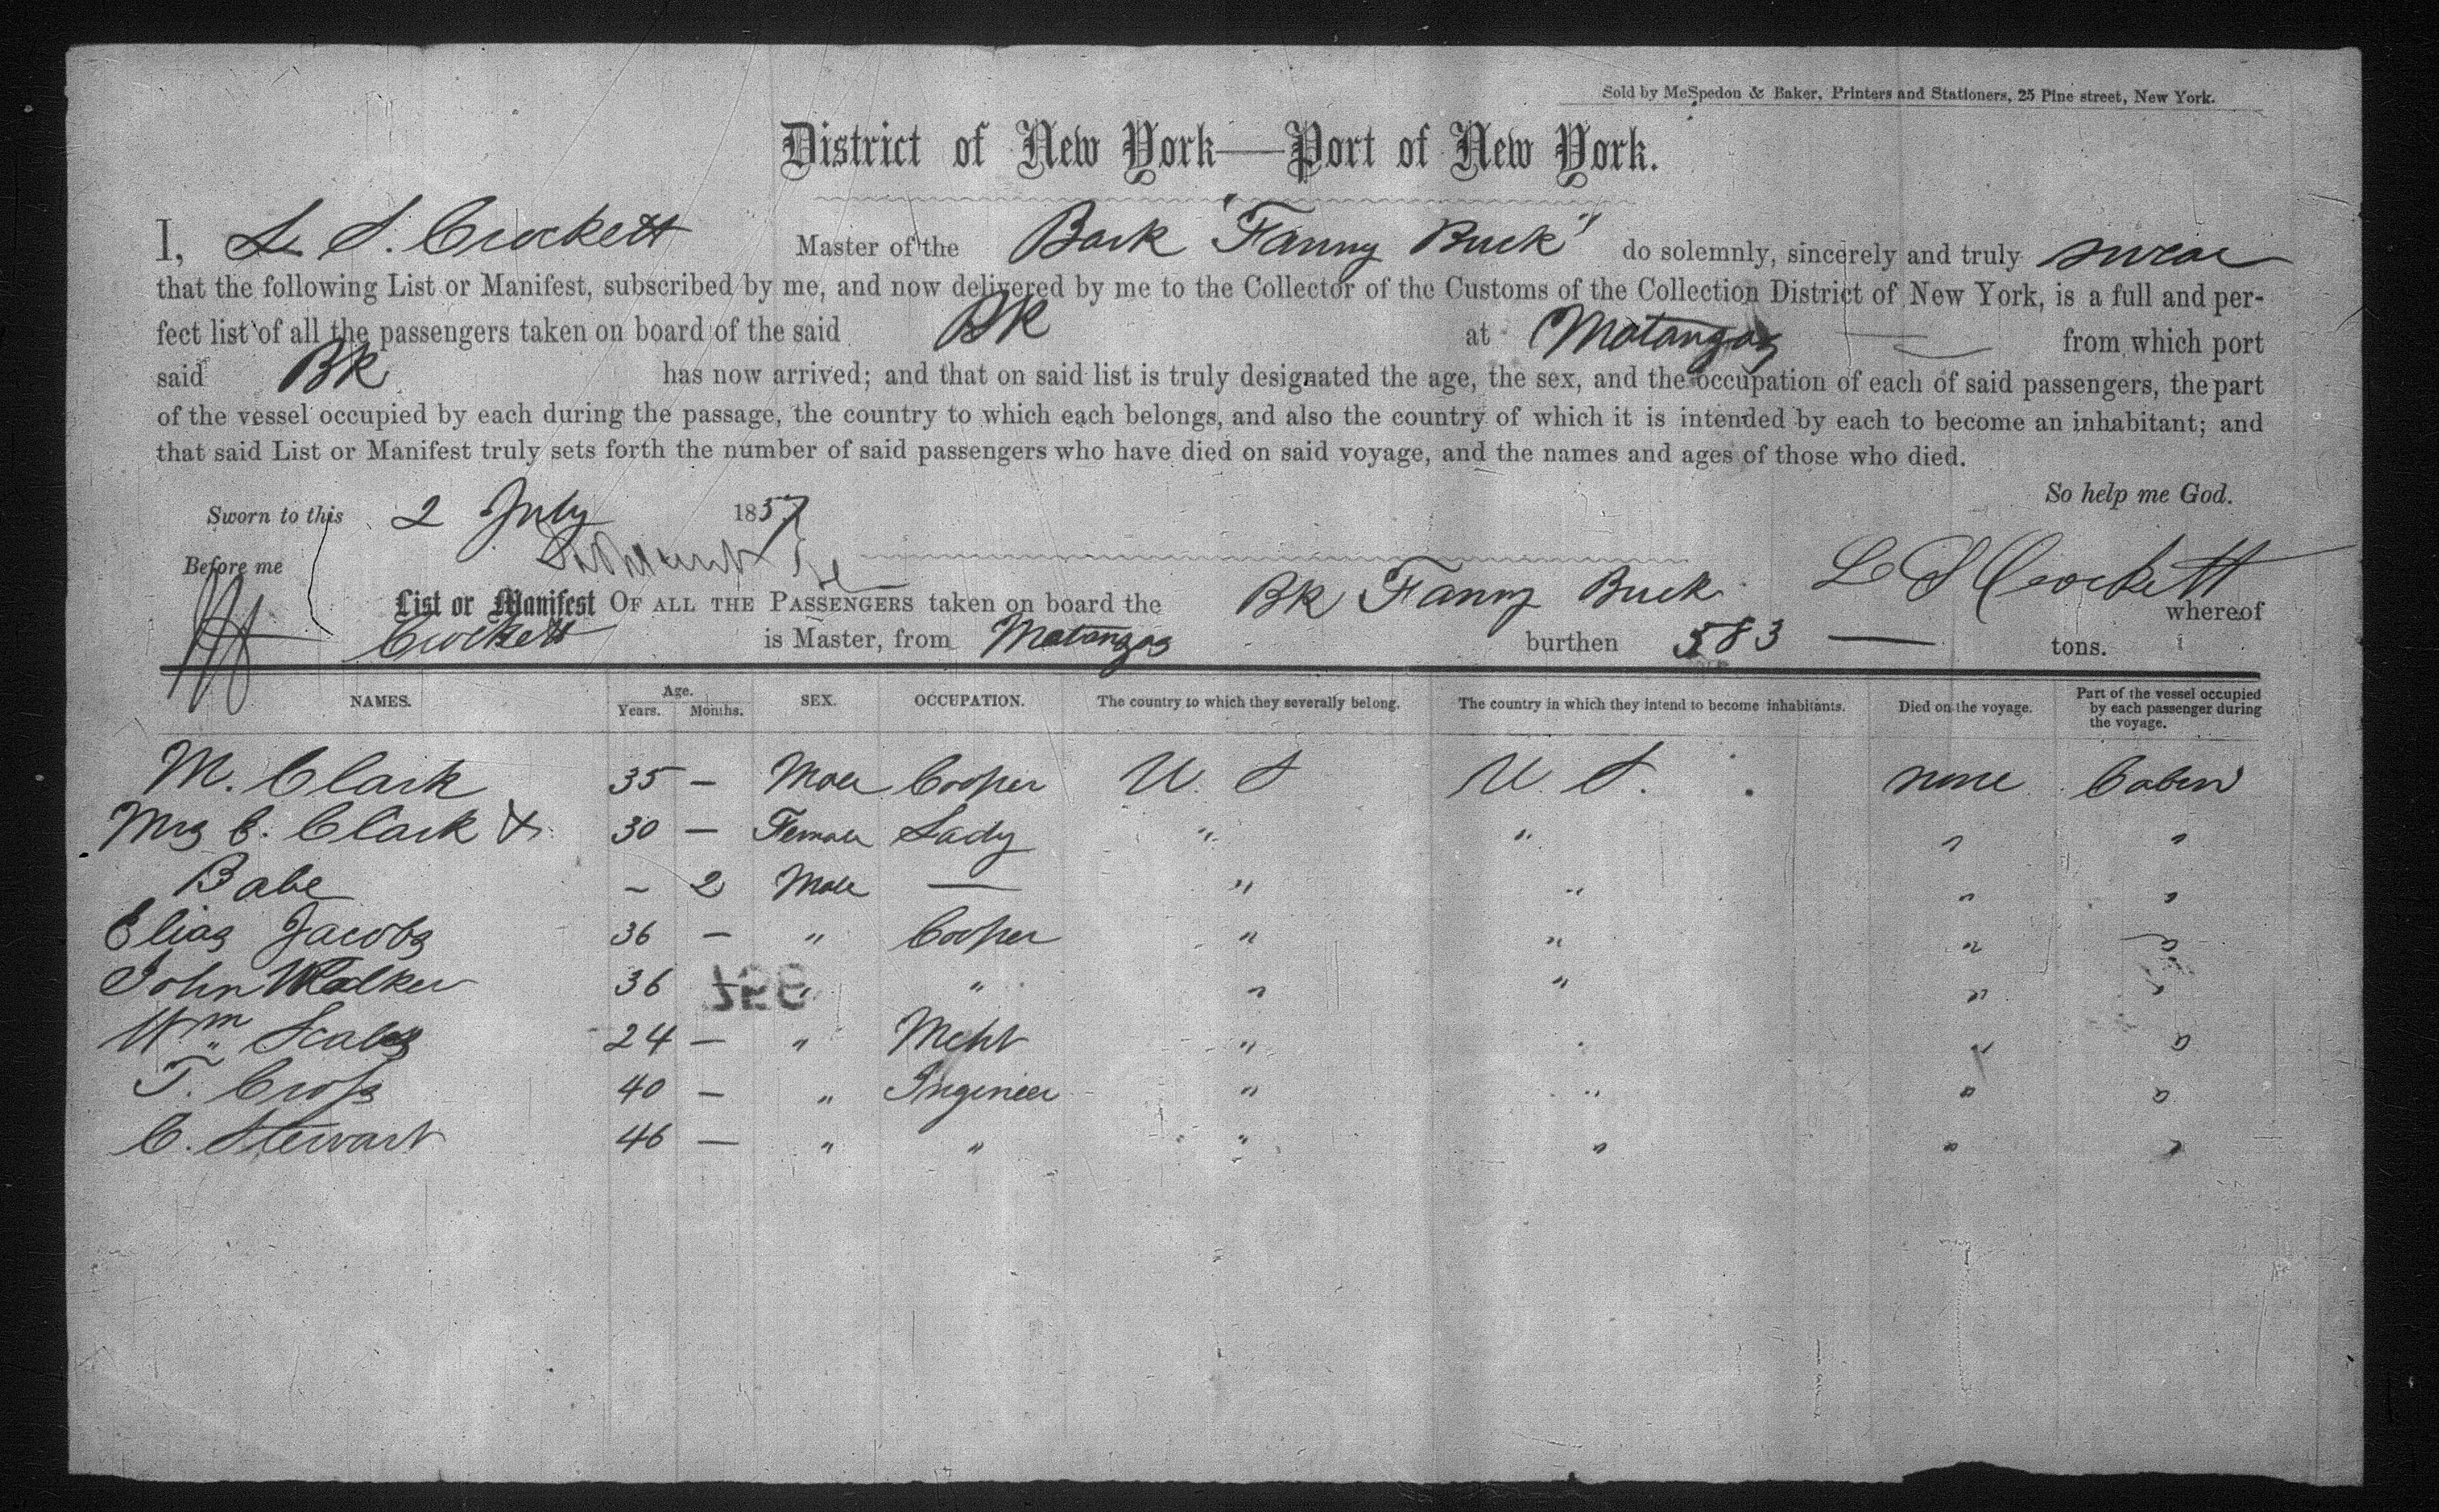 Sold by McSpedon & Baker, Printers and Stationers, 25 Pine street, New York.
District of New York—Port of New York.
I, L. S. Crockett Master of the Bark "Fanny Buck" do solemnly, sincerely and truly swear
that the following List or Manifest, subscribed by me, and now delivered by me to the Collector of the Customs of the Collection District of New York, is a full and per-
fect list of all the passengers taken on board of the said Bk at Matanzas from which port
said Bk has now arrived; and that on said list is truly designated the age, the sex, and the occupation of each of said passengers, the part
of the vessel occupied by each during the passage, the country to which each belongs, and also the country of which it is intended by each to become an inhabitant; and
that said List or Manifest truly sets forth the number of said passengers who have died on said voyage, and the names and ages of those who died.
So help me God.
Sworn to this 2 July 1857
Before me L S Crockett
List or Manifest OF ALL THE PASSENGERS taken on board the Bk Fanny Buck whereof
Crockett is Master, from Matanzas burthen 583 — tons.
NAMES. Age. Years. Months. SEX. OCCUPATION. The country to which they severally belong. The country in which they intend to become inhabitants. Died on the voyage. Part of the vessel occupied by each passenger during the voyage.
M. Clark 35 — Male Cooper U. S U. S. none Cabin
Mrs C. Clark & 30 — Female Lady " " " "
Babe – 2 Male — " " " "
Elias Jacobs 36 — " Cooper " " " "
John Walker 36 — " " " " " "
Wm 24 — " Mcht " " " "
T. Cross 40 — " Ingineer " " " "
C. Stewart 46 — " " " " " "